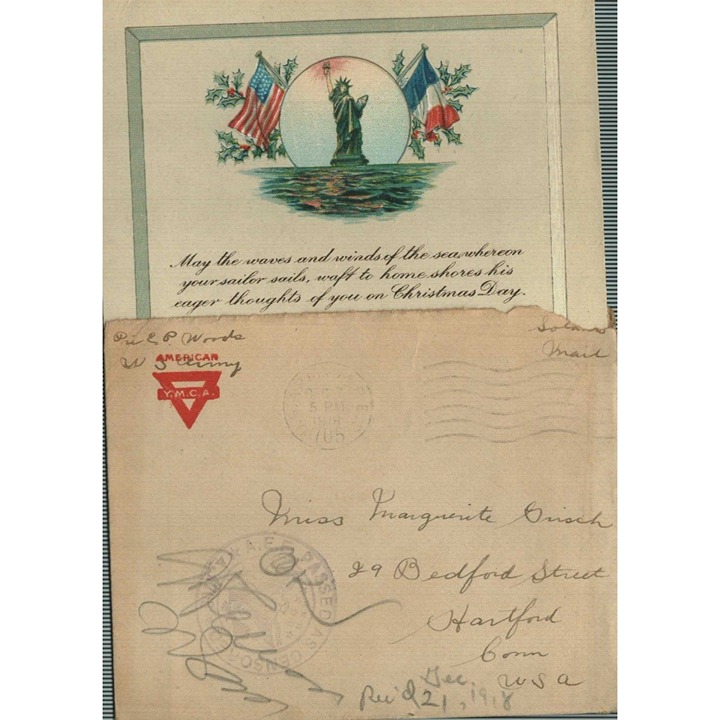 May the waves and winds of the sea, whereon
your sailor sails, waft to home shores his
eager thoughts of you on Christmas Day.
Pvt E. P. Woods
U S Army
AMERICAN
Y.M.C.A.
Soldiers
Mail
5 PM
705
Miss Marguerite Grisch
29 Bedford Street
Hartford
Conn
USA
A.E.F. PASSED AS CENSORED
OK
Rec'd Dec. 21, 1918